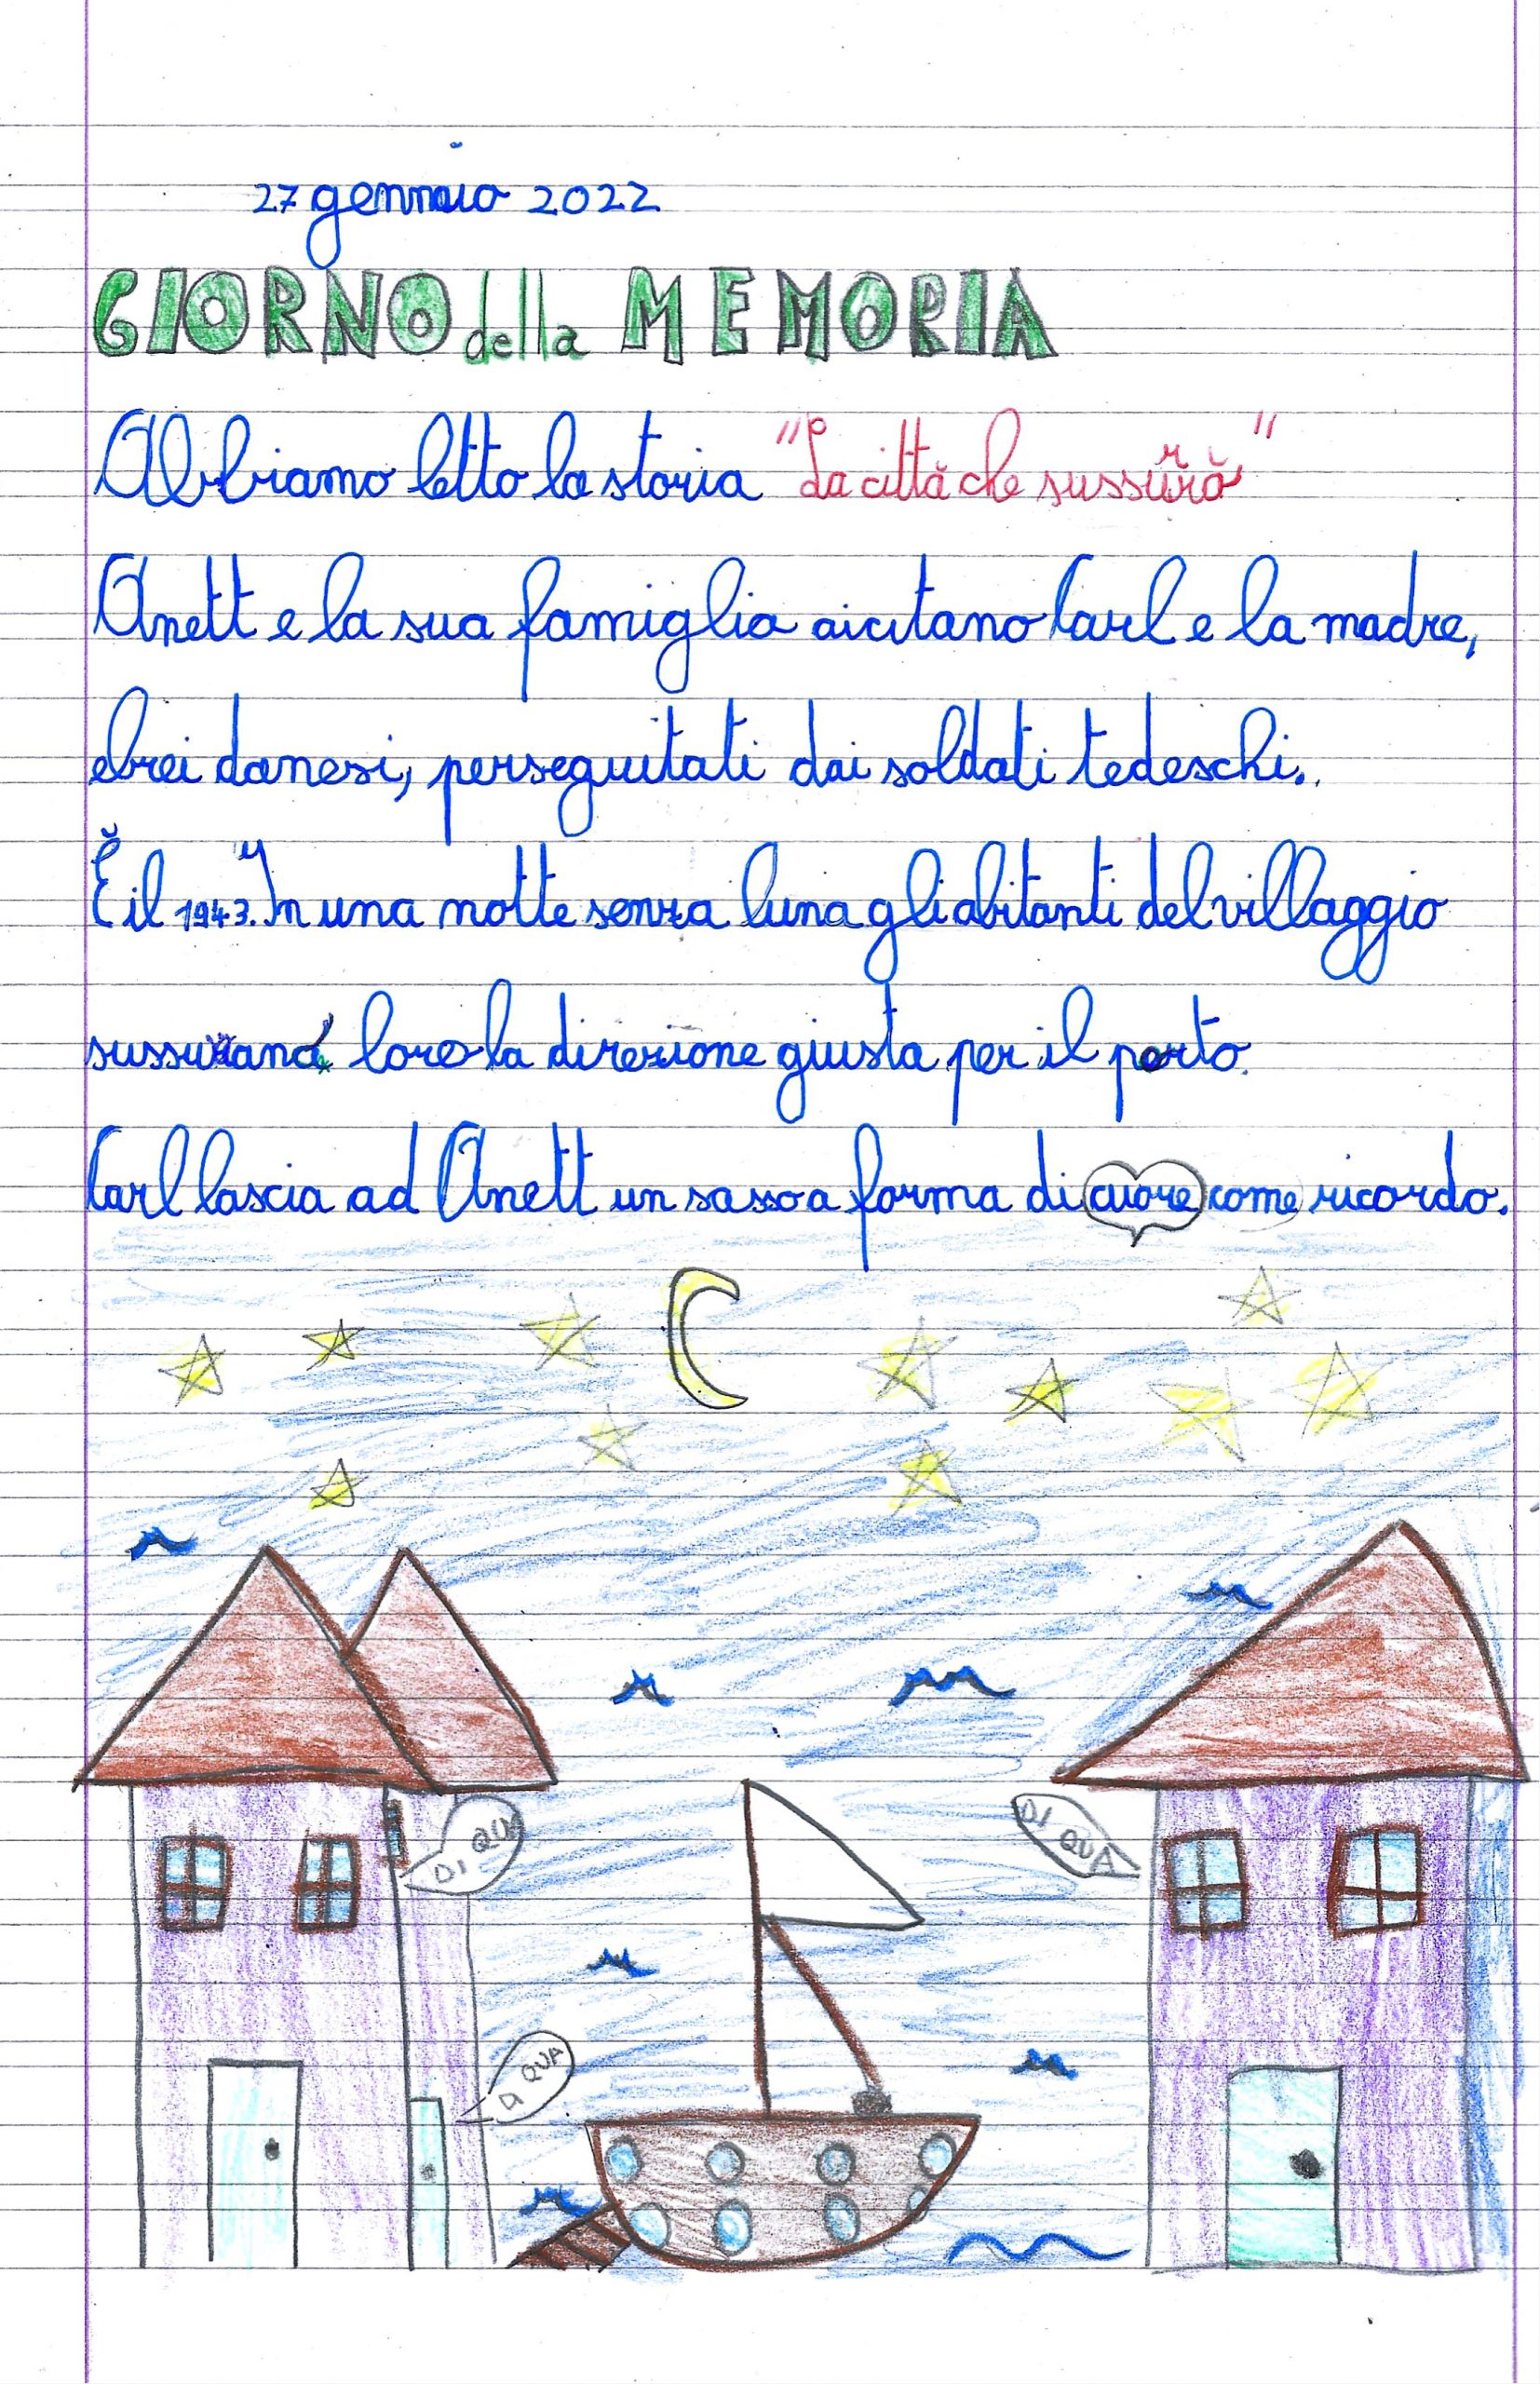 27 gennaio 2022
GIORNO della MEMORIA
Abbiamo letto la storia "La città che sussurrò"
Anett e la sua famiglia aiutano Carl e la madre,
ebrei danesi, perseguitati dai soldati tedeschi.
È il 1943. In una notte senza luna gli abitanti del villaggio
loro la direzione giusta per il porto.
Carl lascia ad Anett un sasso a forma di cuore come ricordo.
DI QUA
DI QUA
DI QUA